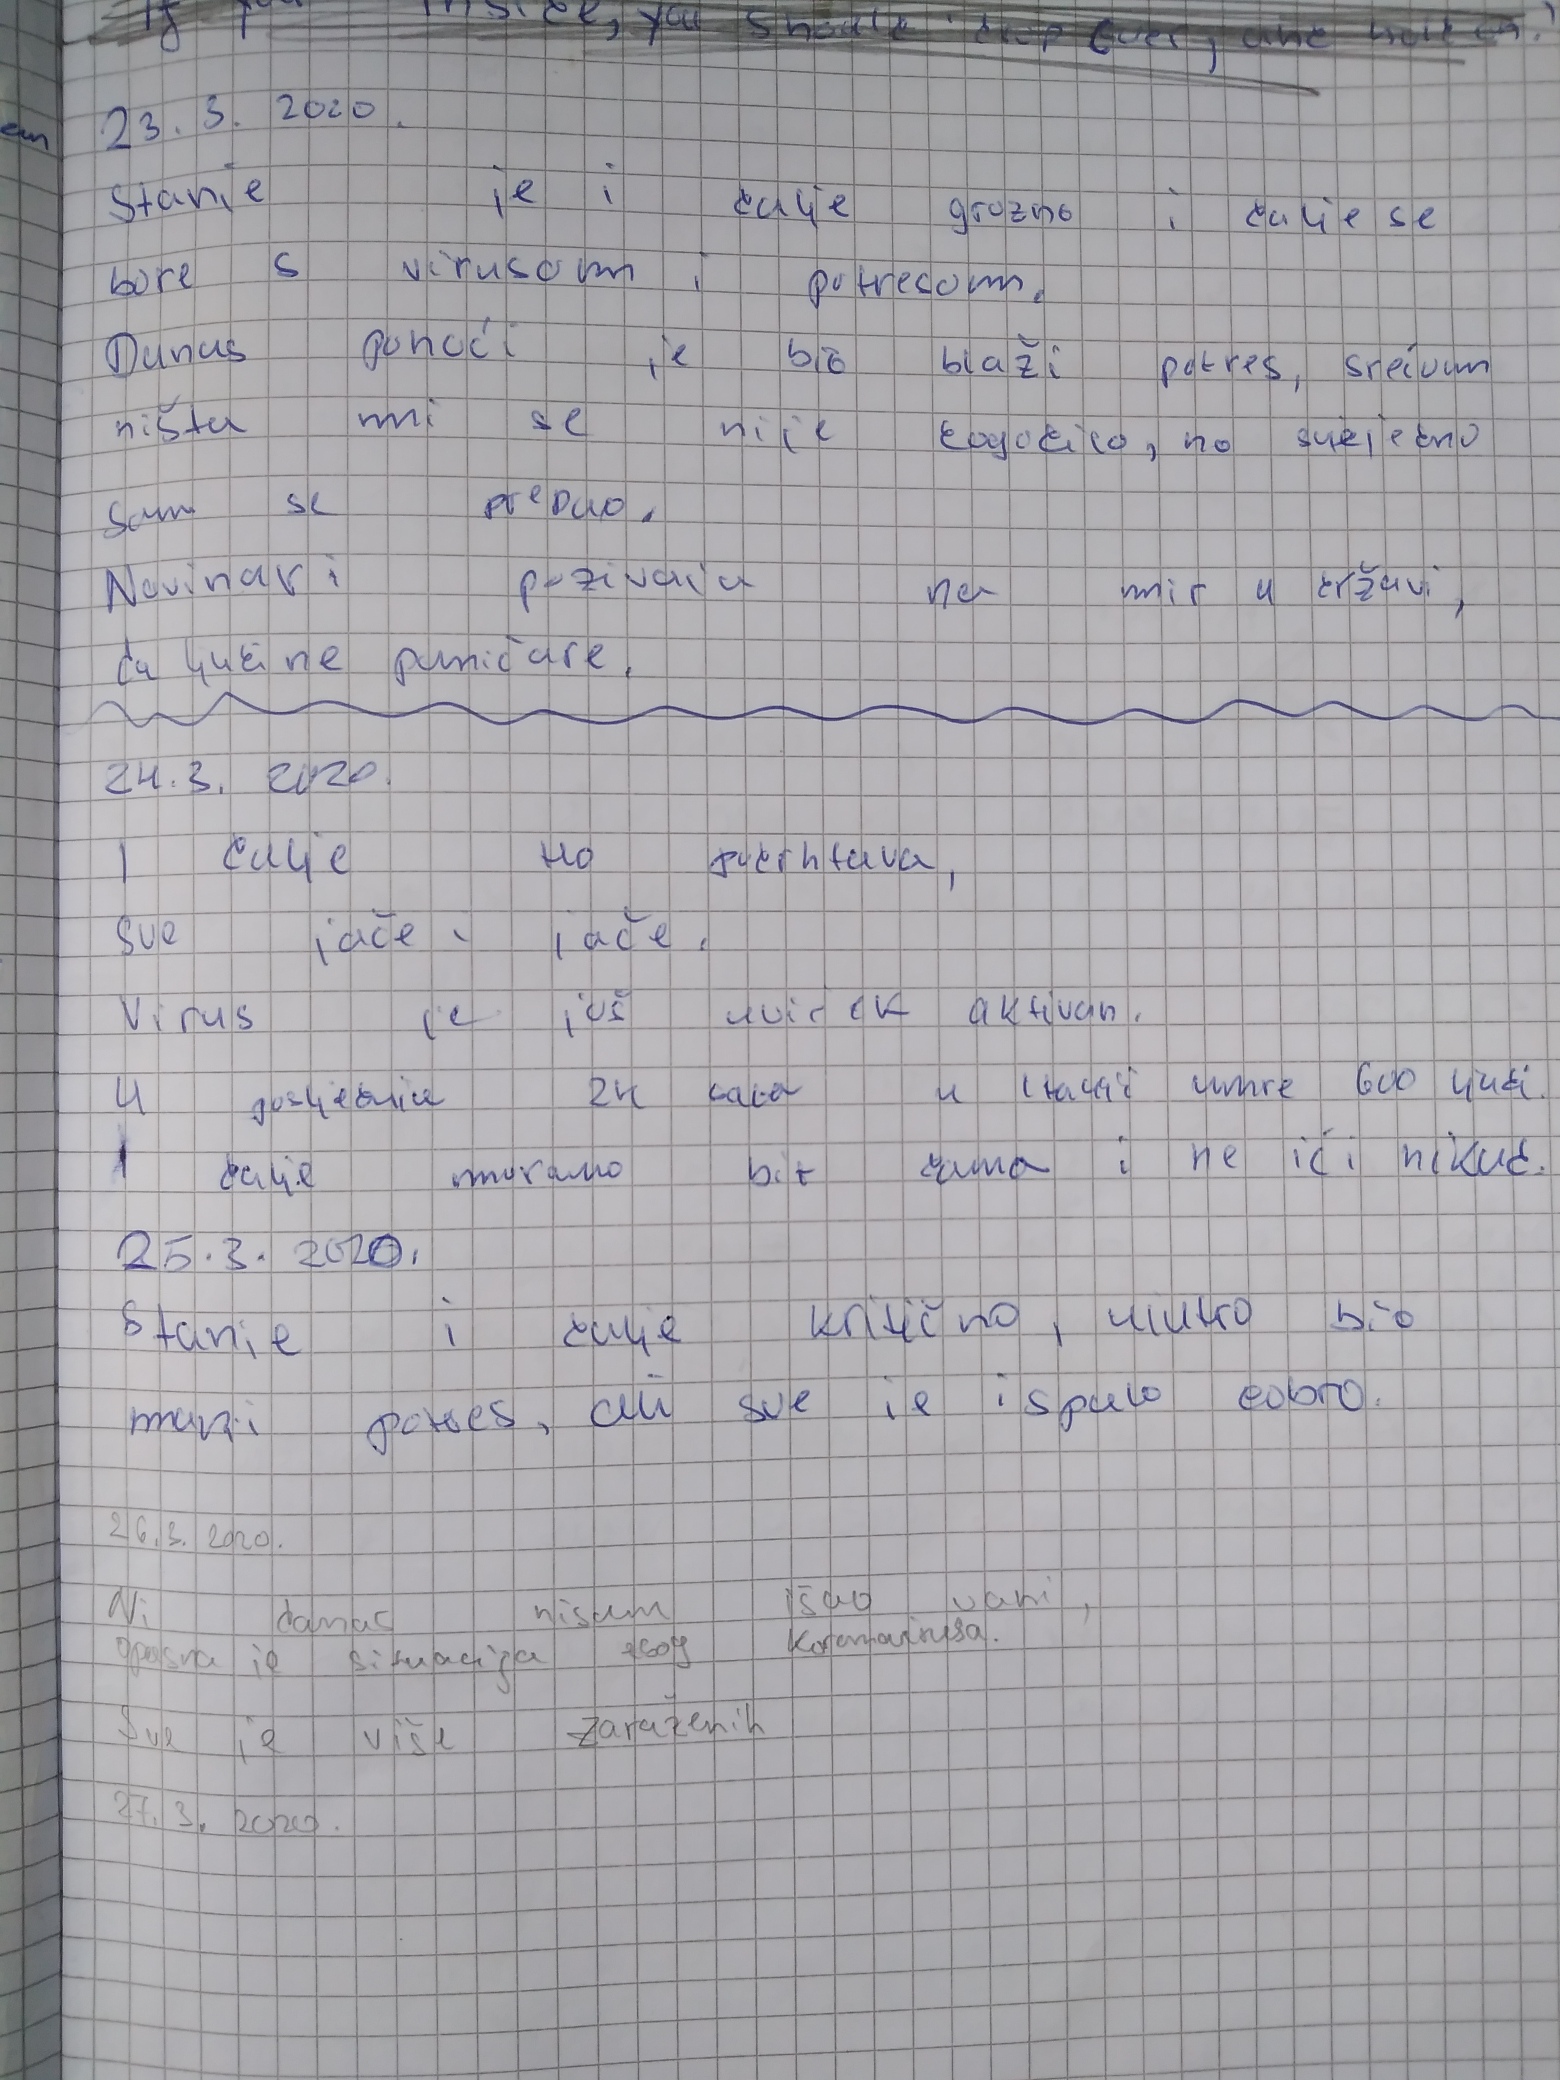 If you inside, you should
23. 3. 2020.
Stanje je i dalje grozno i dalje se
bore s virusom i potresom.
Danas ponoći je bio blaži potres, srećom
ništa mi se nije dogodilo, no svejedno
sam se prepao.
Novinari pozivaju na mir u državi,
da ljudi ne paničare.
24. 3. 2020.
I dalje tlo podrhtava,
sve jače i jače.
Virus je još uvijek aktivan.
U posljednja 24 sata u Italiji umre 600 ljudi.
I dalje moramo bit doma i ne ići nikud.
25. 3. 2020.
Stanje i dalje kritično, ujutro bio
manji potres, ali sve je ispalo dobro.
26. 3. 2020.
Ni danas nisam išao vani,
opasna je situacija zbog koronavirusa.
Sve je više zaraženih
27. 3. 2020.